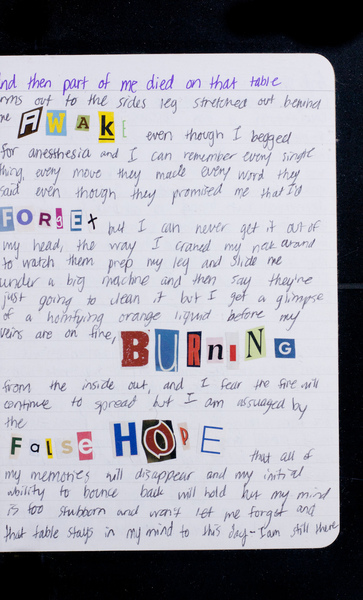 nd then part of me died on that table
rms out to the sides leg stretched out behind
me AWAKE even though I begged
for anesthesia and I can remember every single
thing every move they made every word they
said even though they promised me that I'd
FORgEt but I can never get it out of
my head, the way I craned my neck around
to watch them prep my leg and slide me
under a big machine and then say they're
just going to clean it but I get a glimpse
of a horrifying orange liquid before my
veins are on fire, BURning
from the inside out, and I fear the fire will
continue to spread but I am assuaged by
the
False HOPE that all of
my memories will disappear and my initial
ability to bounce back will hold but my mind
is too stubborn and won't let me forget and
that table stays in my mind to this day - I am still there